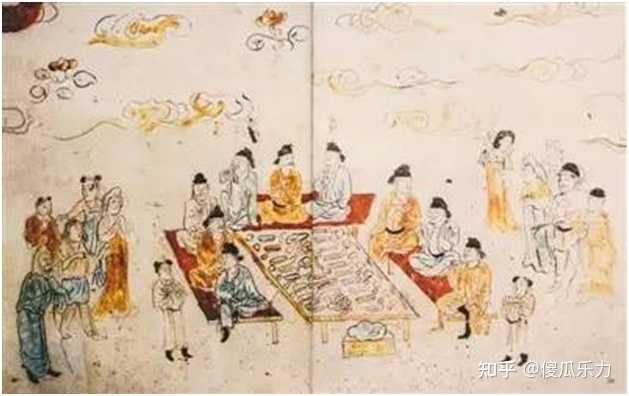 知乎 @傻瓜乐力